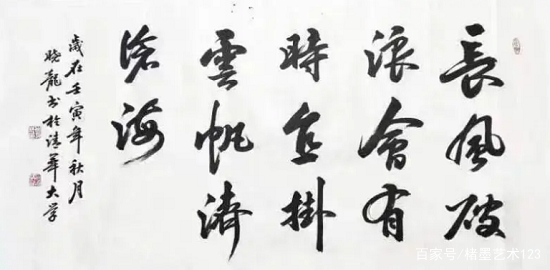 長風破
浪會有
時直掛
雲帆濟
滄海
歲在壬寅年秋月
晓龍书於清華大学
百家号/楮墨艺术123